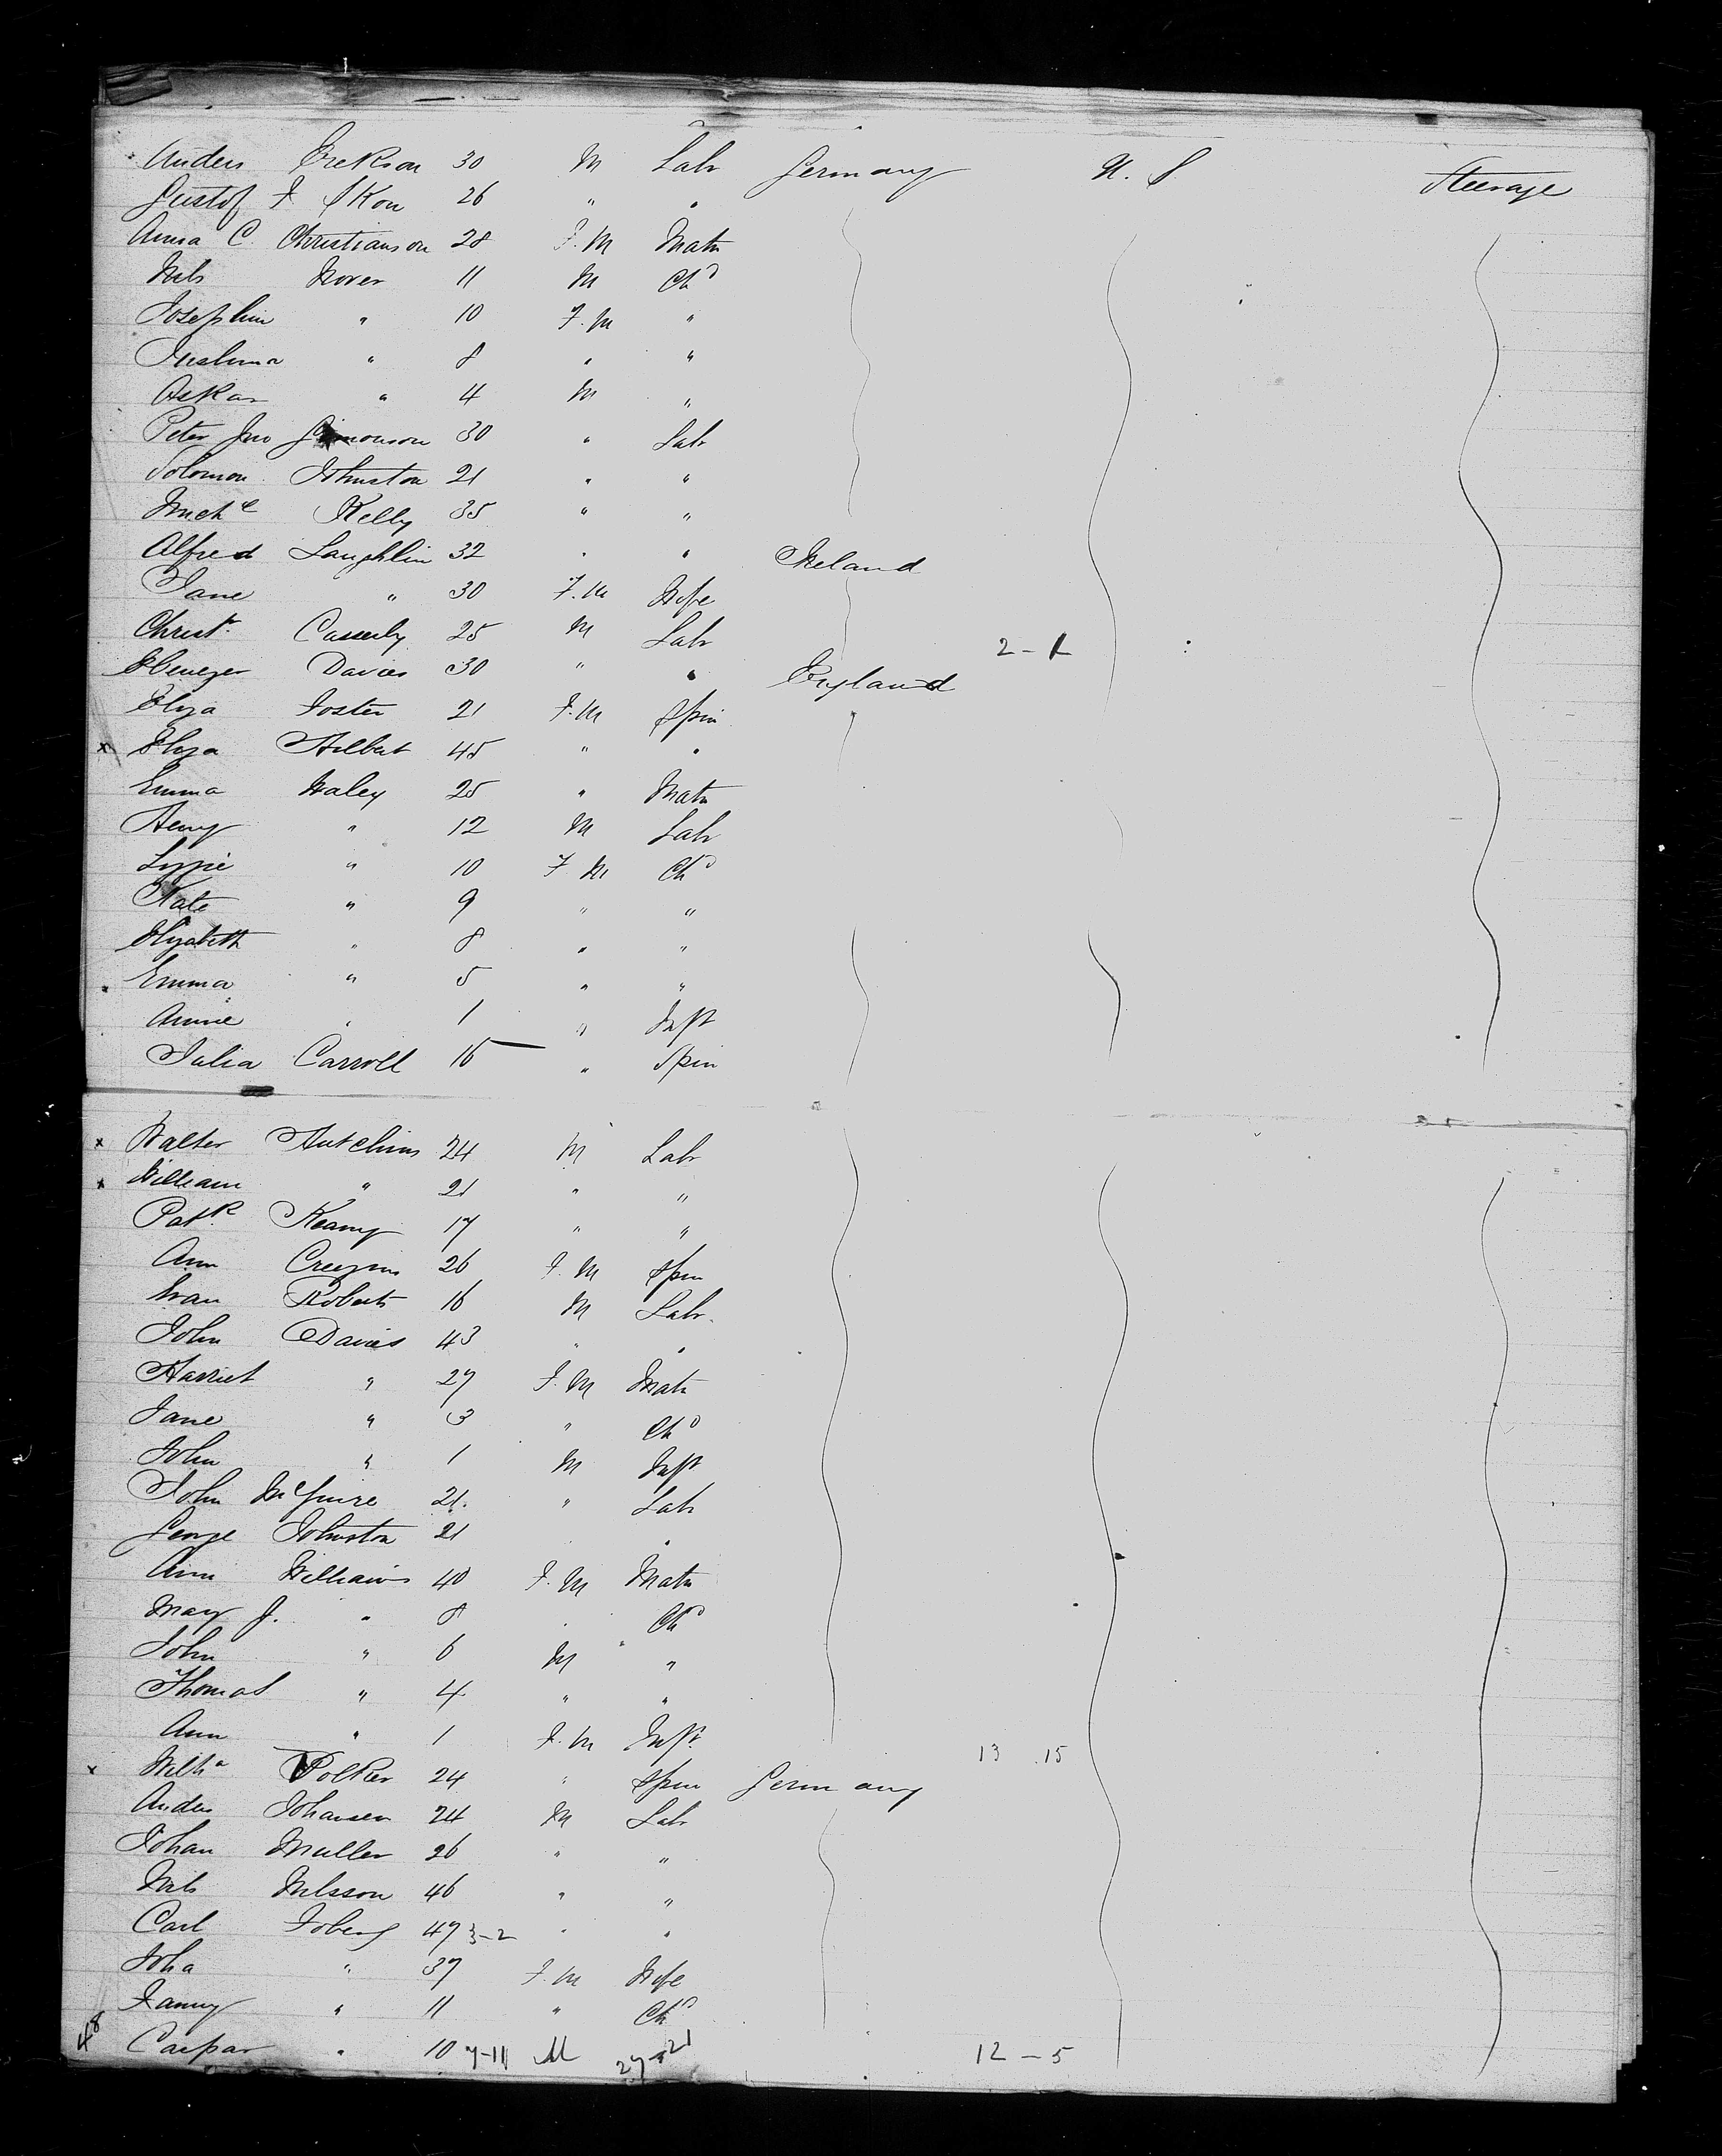 Anders Erekson 30 M Labr Germany U. S Steerage
Gustof F. Skon 26 " "
Anna C. Christianson 28 F. M Matn
Nels Nover 11 M Chd
Josephin " 10 F. M "
" 8 " "
Askar " 4 M "
Peter Jno Simonson 30 " Labr
Solomon Johnston 21 " "
Michl Kelly 35 " "
Alfred Laughlin 32 " " Ireland
Jane " 30 F. M Wife
Christr. Casserly 25 M Labr 2 - 1
Ebenezer Davies 30 " " England
Eliza Foster 21 F. M Spin
x Eliza Hilbert 45 " "
Emma Haley 25 " Matn
Henry " 12 M Labr
Lizzie " 10 F M Chd
Kate " 9 " "
Elizabeth " 8 " "
Emma " 5 " "
Annie " 1 " Inft
Julia Carroll 16 " Spin
x Walter Hutchins 24 M Labr
x William " 21 " "
Patk. Keany 17 " "
Ann 26 F. M Spin
Evan Roberts 16 M Labr.
John Davies 43 " "
Harriet " 27 F. M Matn
Jane " 3 " Chd
John " 1 M Inft
John McGuire 21. " Labr
George Johnston 21 " "
Ann Williams 40 F. M Matn
Mary J. " 8 " Chd
John " 6 M "
Thomas " 4 " "
Ann " 1 F. M Inft. 13 15
x Wilha Polker 24 " Spin Germany
Anders Johansen 24 M Labr
Johan Muller 26 " "
Nels Nelsson 46 " "
Carl Foberg 47 3-2 " "
Joha " 37 F. M Wife
Fanny " 11 " Chd
48 Caspar " 10 7-11 M 27-21 12 - 5